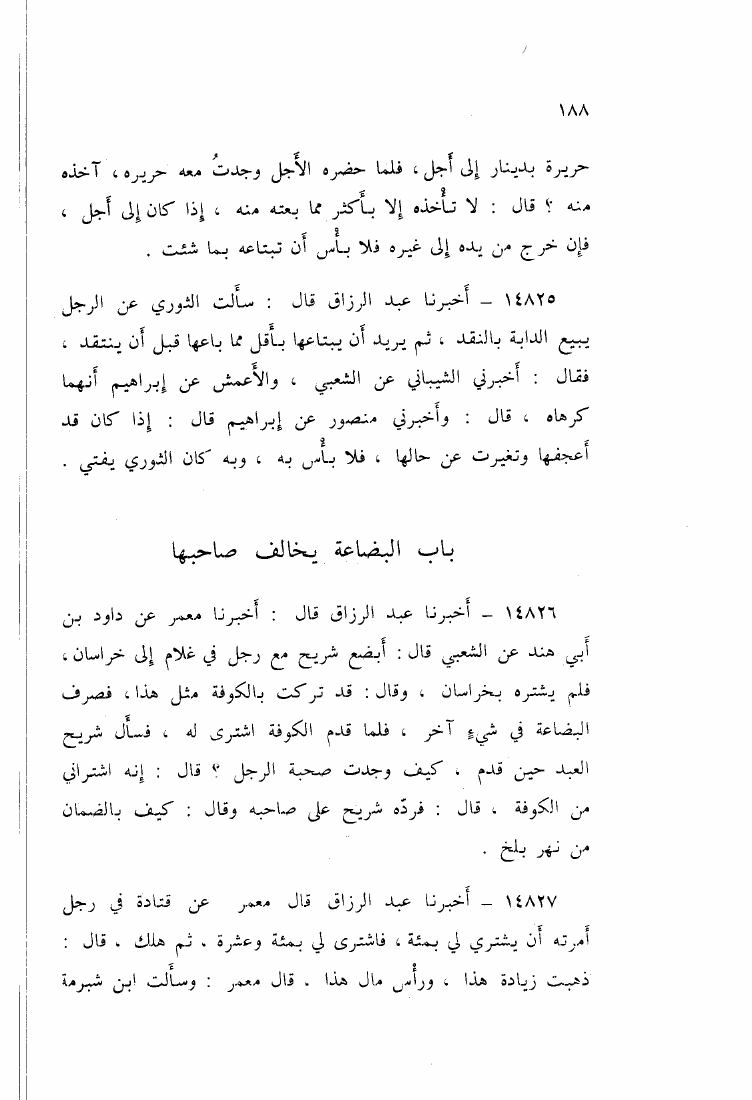 ١٨٨
حريرة بدينار إلى أَجل، فلما حضره الأَجل وجدتُ معه حريره، آخذه
منه ؟ قال : لا تأْخذه إلا بأَكثر مما بعته منه ، إذا كان إلى أَجل ،
فإن خرج من يده إلى غيره فلا بأْس أَن تبتاعه بما شئت .
١٤٨٢٥ – أَخبرنا عبد الرزاق قال : سأَلت الثوري عن الرجل
يبيع الدابة بالنقد ، ثم يريد أَن يبتاعها بأَقل مما باعها قبل أَن ينتقد ،
فقال : أَخبرني الشيباني عن الشعبي ، والأَعمش عن إبراهيم أَنهما
كرهاه ، قال : وأَخبرني منصور عن إبراهيم قال : إذا كان قد
أَعجفها وتغيرت عن حالها ، فلا بأْس به ، وبه كان الثوري يفتي .
باب البضاعة يخالف صاحبها
١٤٨٢٦ – أَخبرنا عبد الرزاق قال : أَخبرنا معمر عن داود بن
أَبي هند عن الشعبي قال : أَبضع شريح مع رجل في غلام إلى خراسان ،
فلم يشتره بخراسان ، وقال : قد تركت بالكوفة مثل هذا ، فصرف
البضاعة في شيءٍ آخر ، فلما قدم الكوفة اشترى له ، فسأَل شريح
العبد حين قدم ، كيف وجدت صحبة الرجل ؟ قال : إنه اشتراني
من الكوفة ، قال : فردّه شريح على صاحبه وقال : كيف بالضمان
من نهر بلخ .
١٤٨٢٧ – أَخبرنا عبد الرزاق قال معمر عن قتادة في رجل
أَمرته أَن يشتري لي بمئة ، فاشترى لي بمئة وعشرة . ثم هلك . قال :
ذهبت زيادة هذا ، ورأْس مال هذا . قال معمر : وسأَلت ابن شبرمة